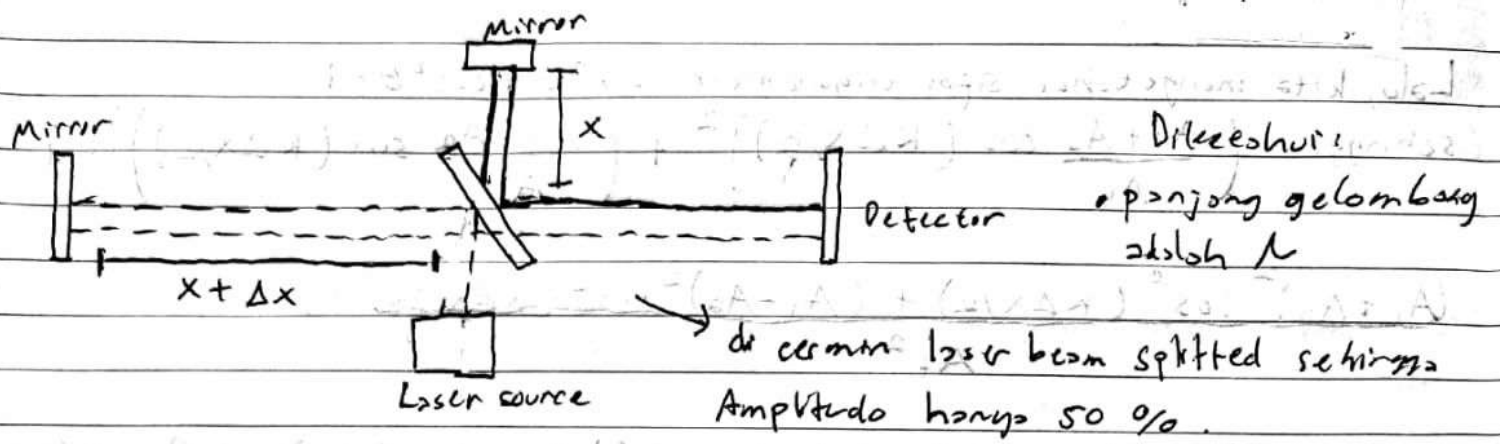 Mirror
Mirror
x
Diketahui:
• panjang gelombang
adalah λ
Detector
x + Δx
di cermin laser beam splitted sehingga
Amplitudo hanya 50 %.
Laser source